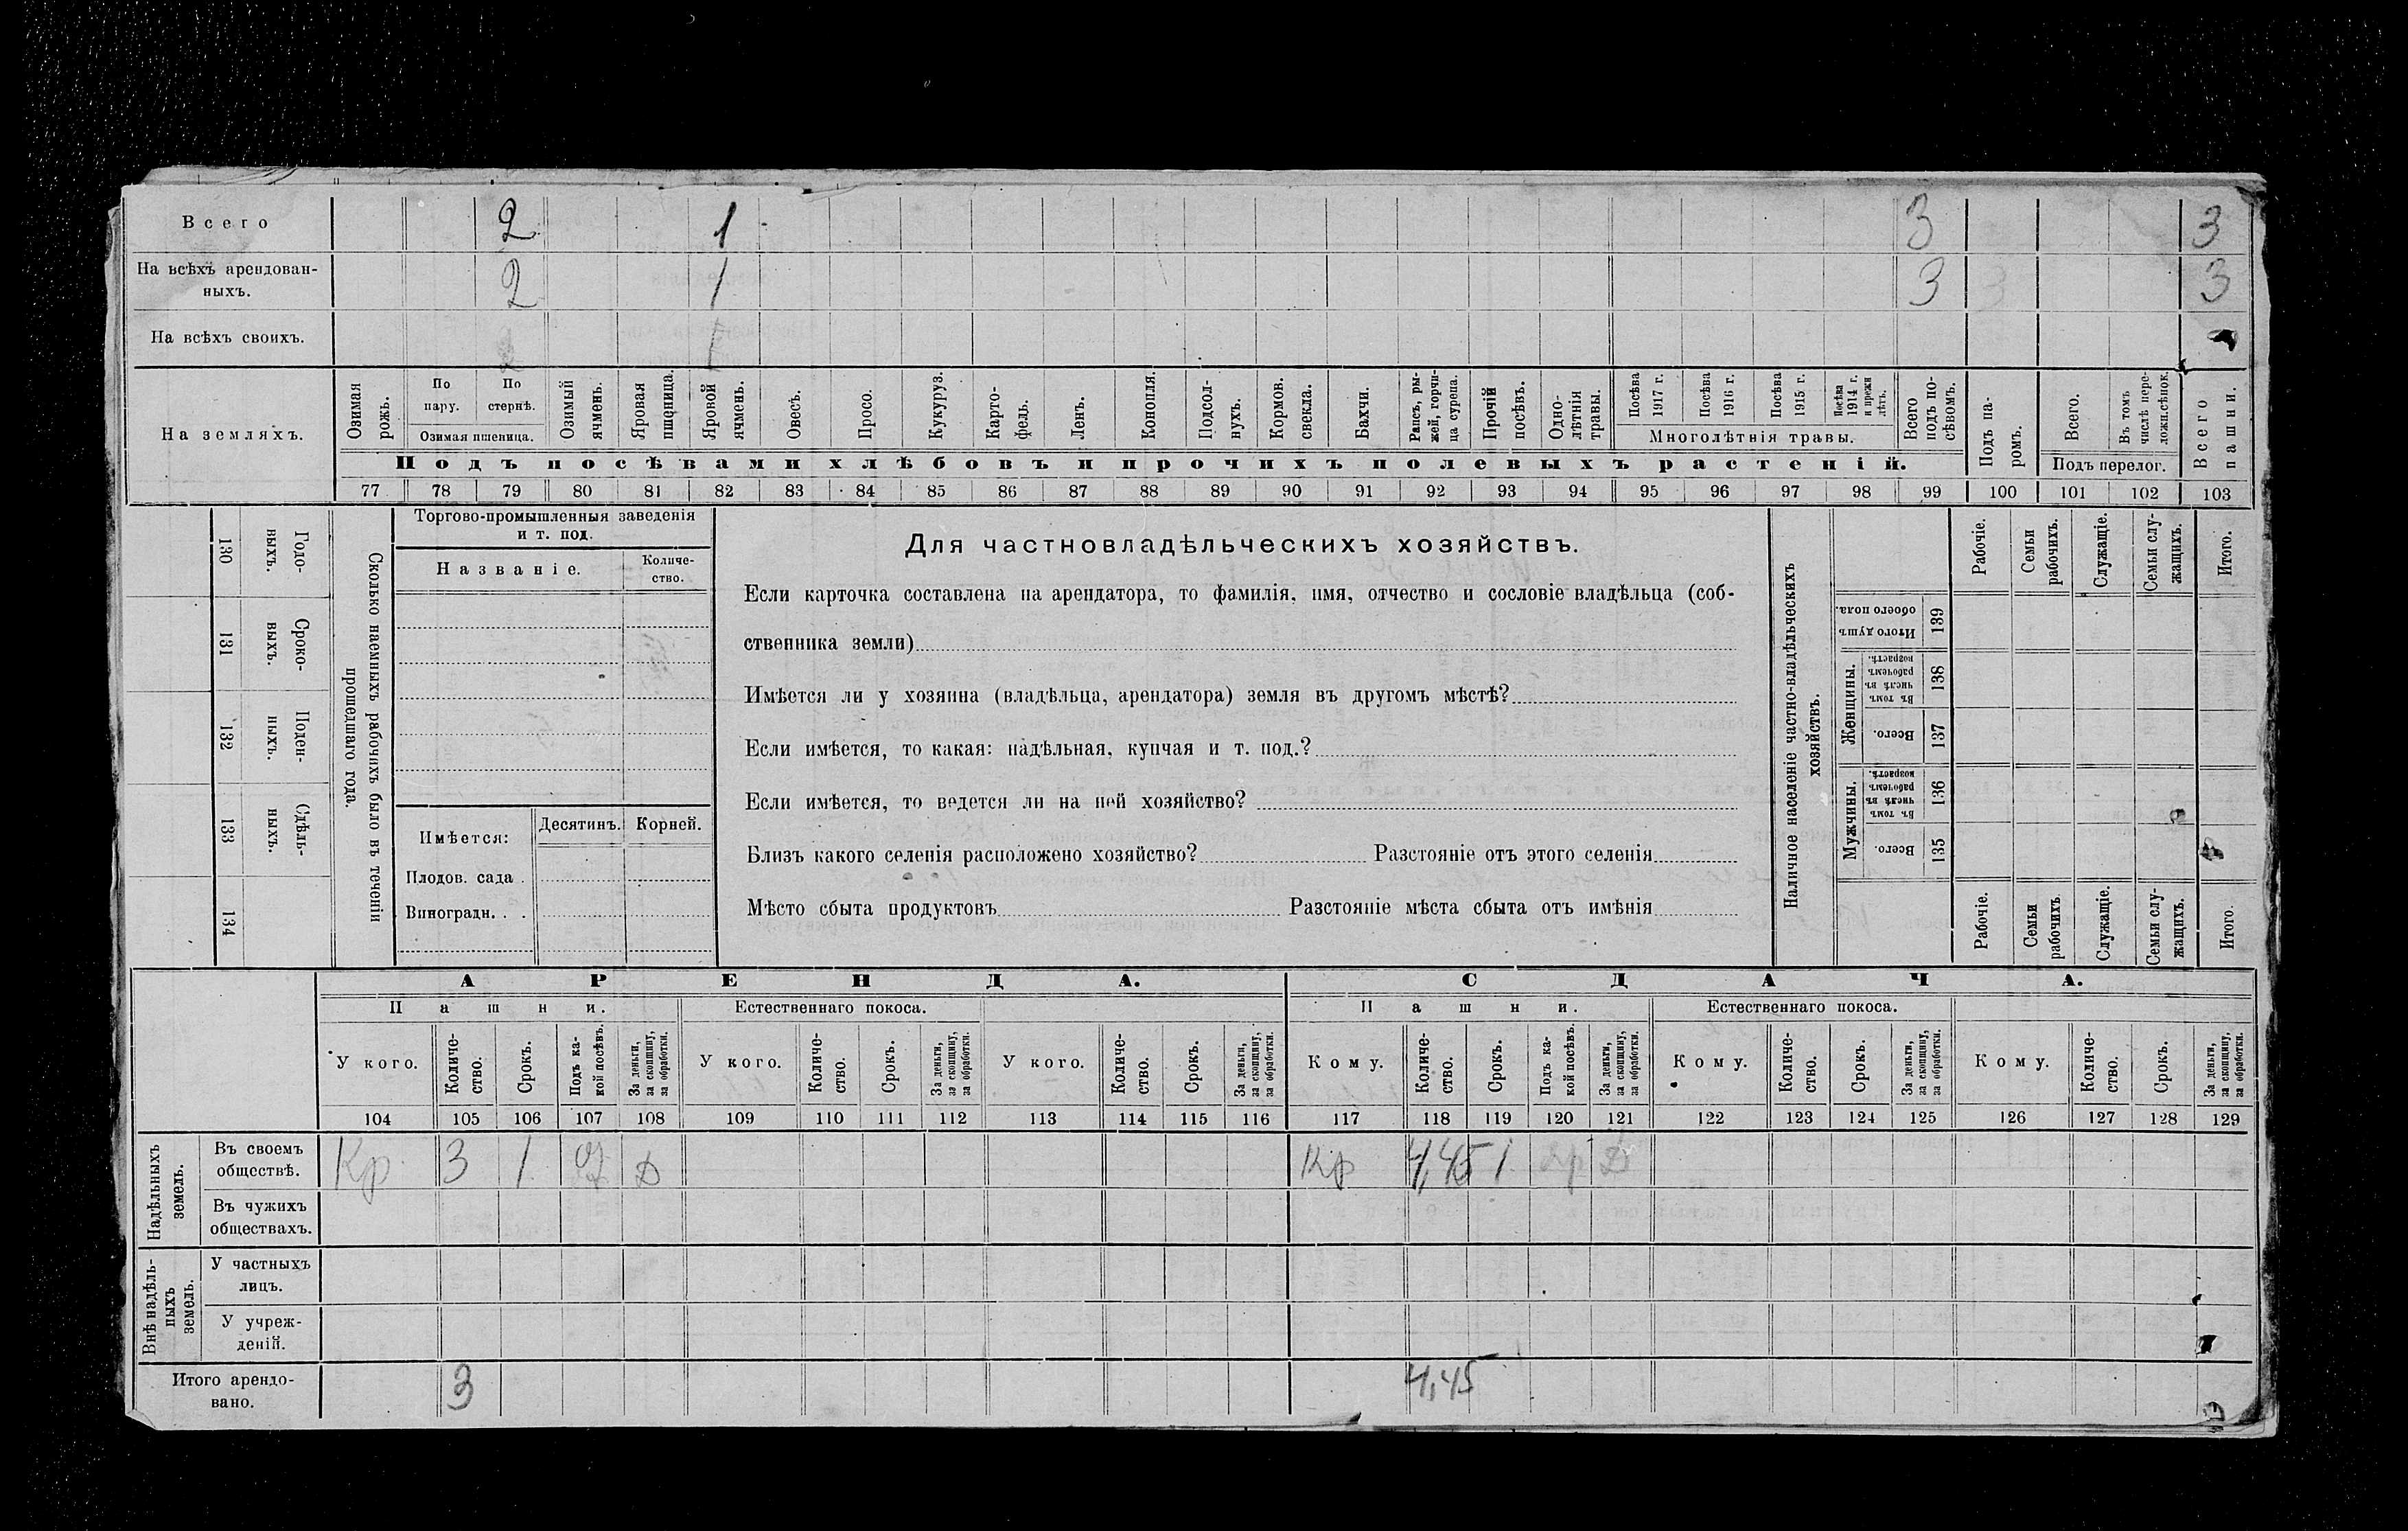 Всего 2 1 3 3
На всѣхъ арендован-
ныхъ. 2 1 3 3
На всѣхъ своихъ.
На земляхъ.
Озимая рожь.
По пару.
По стернѣ.
Озимая пшеница.
Озимый ячмень.
Яровая пшеница.
Яровой ячмень.
Овесъ.
Просо.
Кукуруз.
Карто-
фель.
Ленъ.
Конопля.
Подсол-
нухъ.
Кормов.
свекла.
Бахчи.
Рапсъ, ры-
жей, горчи-
ца сурепа.
Прочій
посѣвъ.
Одно-
лѣтнія
травы.
Посѣва
1917 г.
Посѣва
1916 г.
Посѣва
1915 г.
Посѣва
1914 г.
и прежн
лѣтъ.
Многолѣтнія травы.
Всего
подъ по-
сѣвомъ.
Подъ па-
ромъ.
Всего.
Въ томъ
числѣ пере-
ложн.сѣнок.
Подъ перелог.
Всего
пашни.
Подъ посѣвами хлѣбовъ и прочихъ полевыхъ растеній.
77 78 79 80 81 82 83 84 85 86 87 88 89 90 91 92 93 94 95 96 97 98 99 100 101 102 103
130 Годо-
выхъ.
131 Сроко-
выхъ.
132 Поден-
ныхъ.
133 Сдѣль-
ныхъ.
134
Сколько наемныхъ рабочихъ было въ теченіи
прошедшаго года.
Торгово-промышленныя заведенія
и т. под.
Названіе.
Количе-
ство.
Имѣется:
Десятинъ.
Корней.
Плодов. сада .
Виноградн. . .
Для частновладѣльческихъ хозяйствъ.
Если карточка составлена на арендатора, то фамилія, имя, отчество и сословіе владѣльца (соб-
ственника земли)
Имѣется ли у хозяина (владѣльца, арендатора) земля въ другомъ мѣстѣ?
Если имѣется, то какая: надѣльная, купчая и т. под.?
Если имѣется, то ведется ли на ней хозяйство?
Близъ какого селенія расположено хозяйство? Разстояніе отъ этого селенія
Мѣсто сбыта продуктовъ Разстояніе мѣста сбыта отъ имѣнія
Наличное населеніе частно-владѣльческихъ
хозяйствъ.
Рабочіе.
Семьи
рабочихъ.
Служащіе.
Семьи слу-
жащихъ.
Итого.
Итого душъ
обоего пола.
139
Женщины.
Въ томъ
числѣ въ
рабочемъ
возрастѣ.
138
Всего.
137
Мужчины.
Въ томъ
числѣ въ
рабочемъ
возрастѣ.
136
Всего.
135
Рабочіе.
Семьи
рабочихъ.
Служащіе.
Семьи слу-
жащихъ.
Итого.
АРЕНДА. СДАЧА.
Пашни. Естественнаго покоса. Пашни. Естественнаго покоса.
У кого.
Количе-
ство.
Срокъ.
Подъ ка-
кой посѣвъ.
За деньги,
за скопщину,
за обработки.
У кого.
Количе-
ство.
Срокъ.
За деньги,
за скопщину,
за обработки.
У кого.
Количе-
ство.
Срокъ.
За деньги,
за скопщину,
за обработки.
Кому.
Количе-
ство.
Срокъ.
Подъ ка-
кой посѣвъ.
За деньги,
за скопщину,
за обработки.
Кому.
Количе-
ство.
Срокъ.
За деньги,
за скопщину,
за обработки.
Кому.
Количе-
ство.
Срокъ.
За деньги,
за скопщину,
за обработки.
104 105 106 107 108 109 110 111 112 113 114 115 116 117 118 119 120 121 122 123 124 125 126 127 128 129
Надѣльныхъ
земель.
Въ своемъ
обществѣ. Кр 3 1 Д Кр 4,45 1 Д
Въ чужихъ
обществахъ.
Внѣ надѣль-
ныхъ
земель.
У частныхъ
лицъ.
У учреж-
деній.
Итого арендо-
вано. 3 4,45